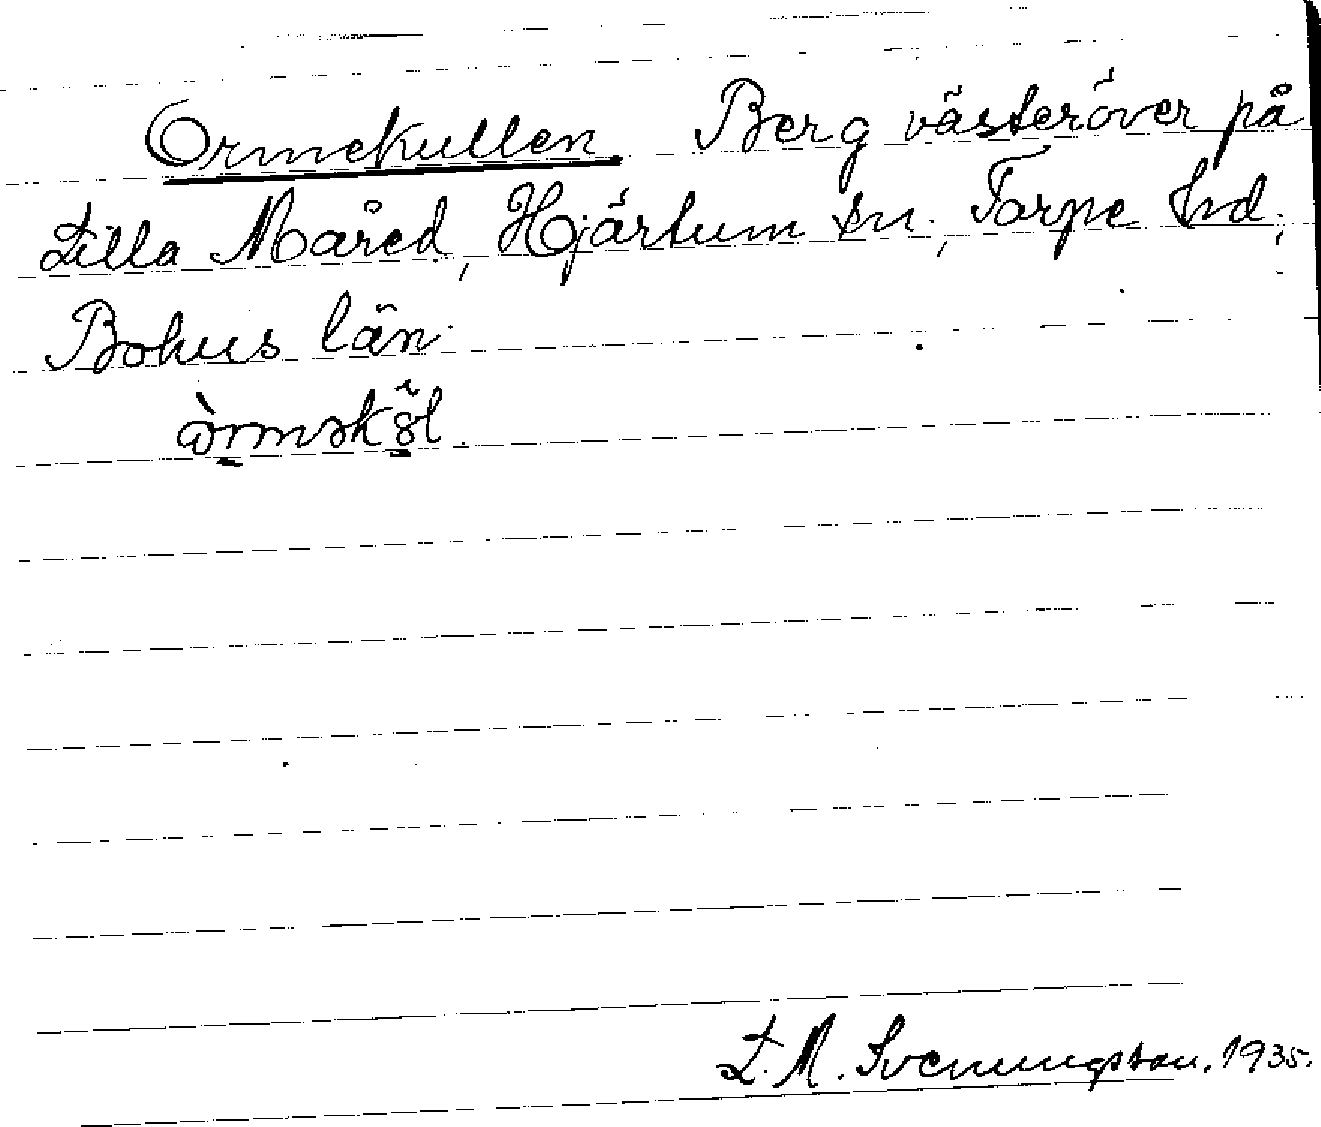 Ormekullen Berg västeröver på
Lilla Måred, Hjärtum sn, Torpe hd,
Bohus län.
L. M. Svenungsson. 1935.